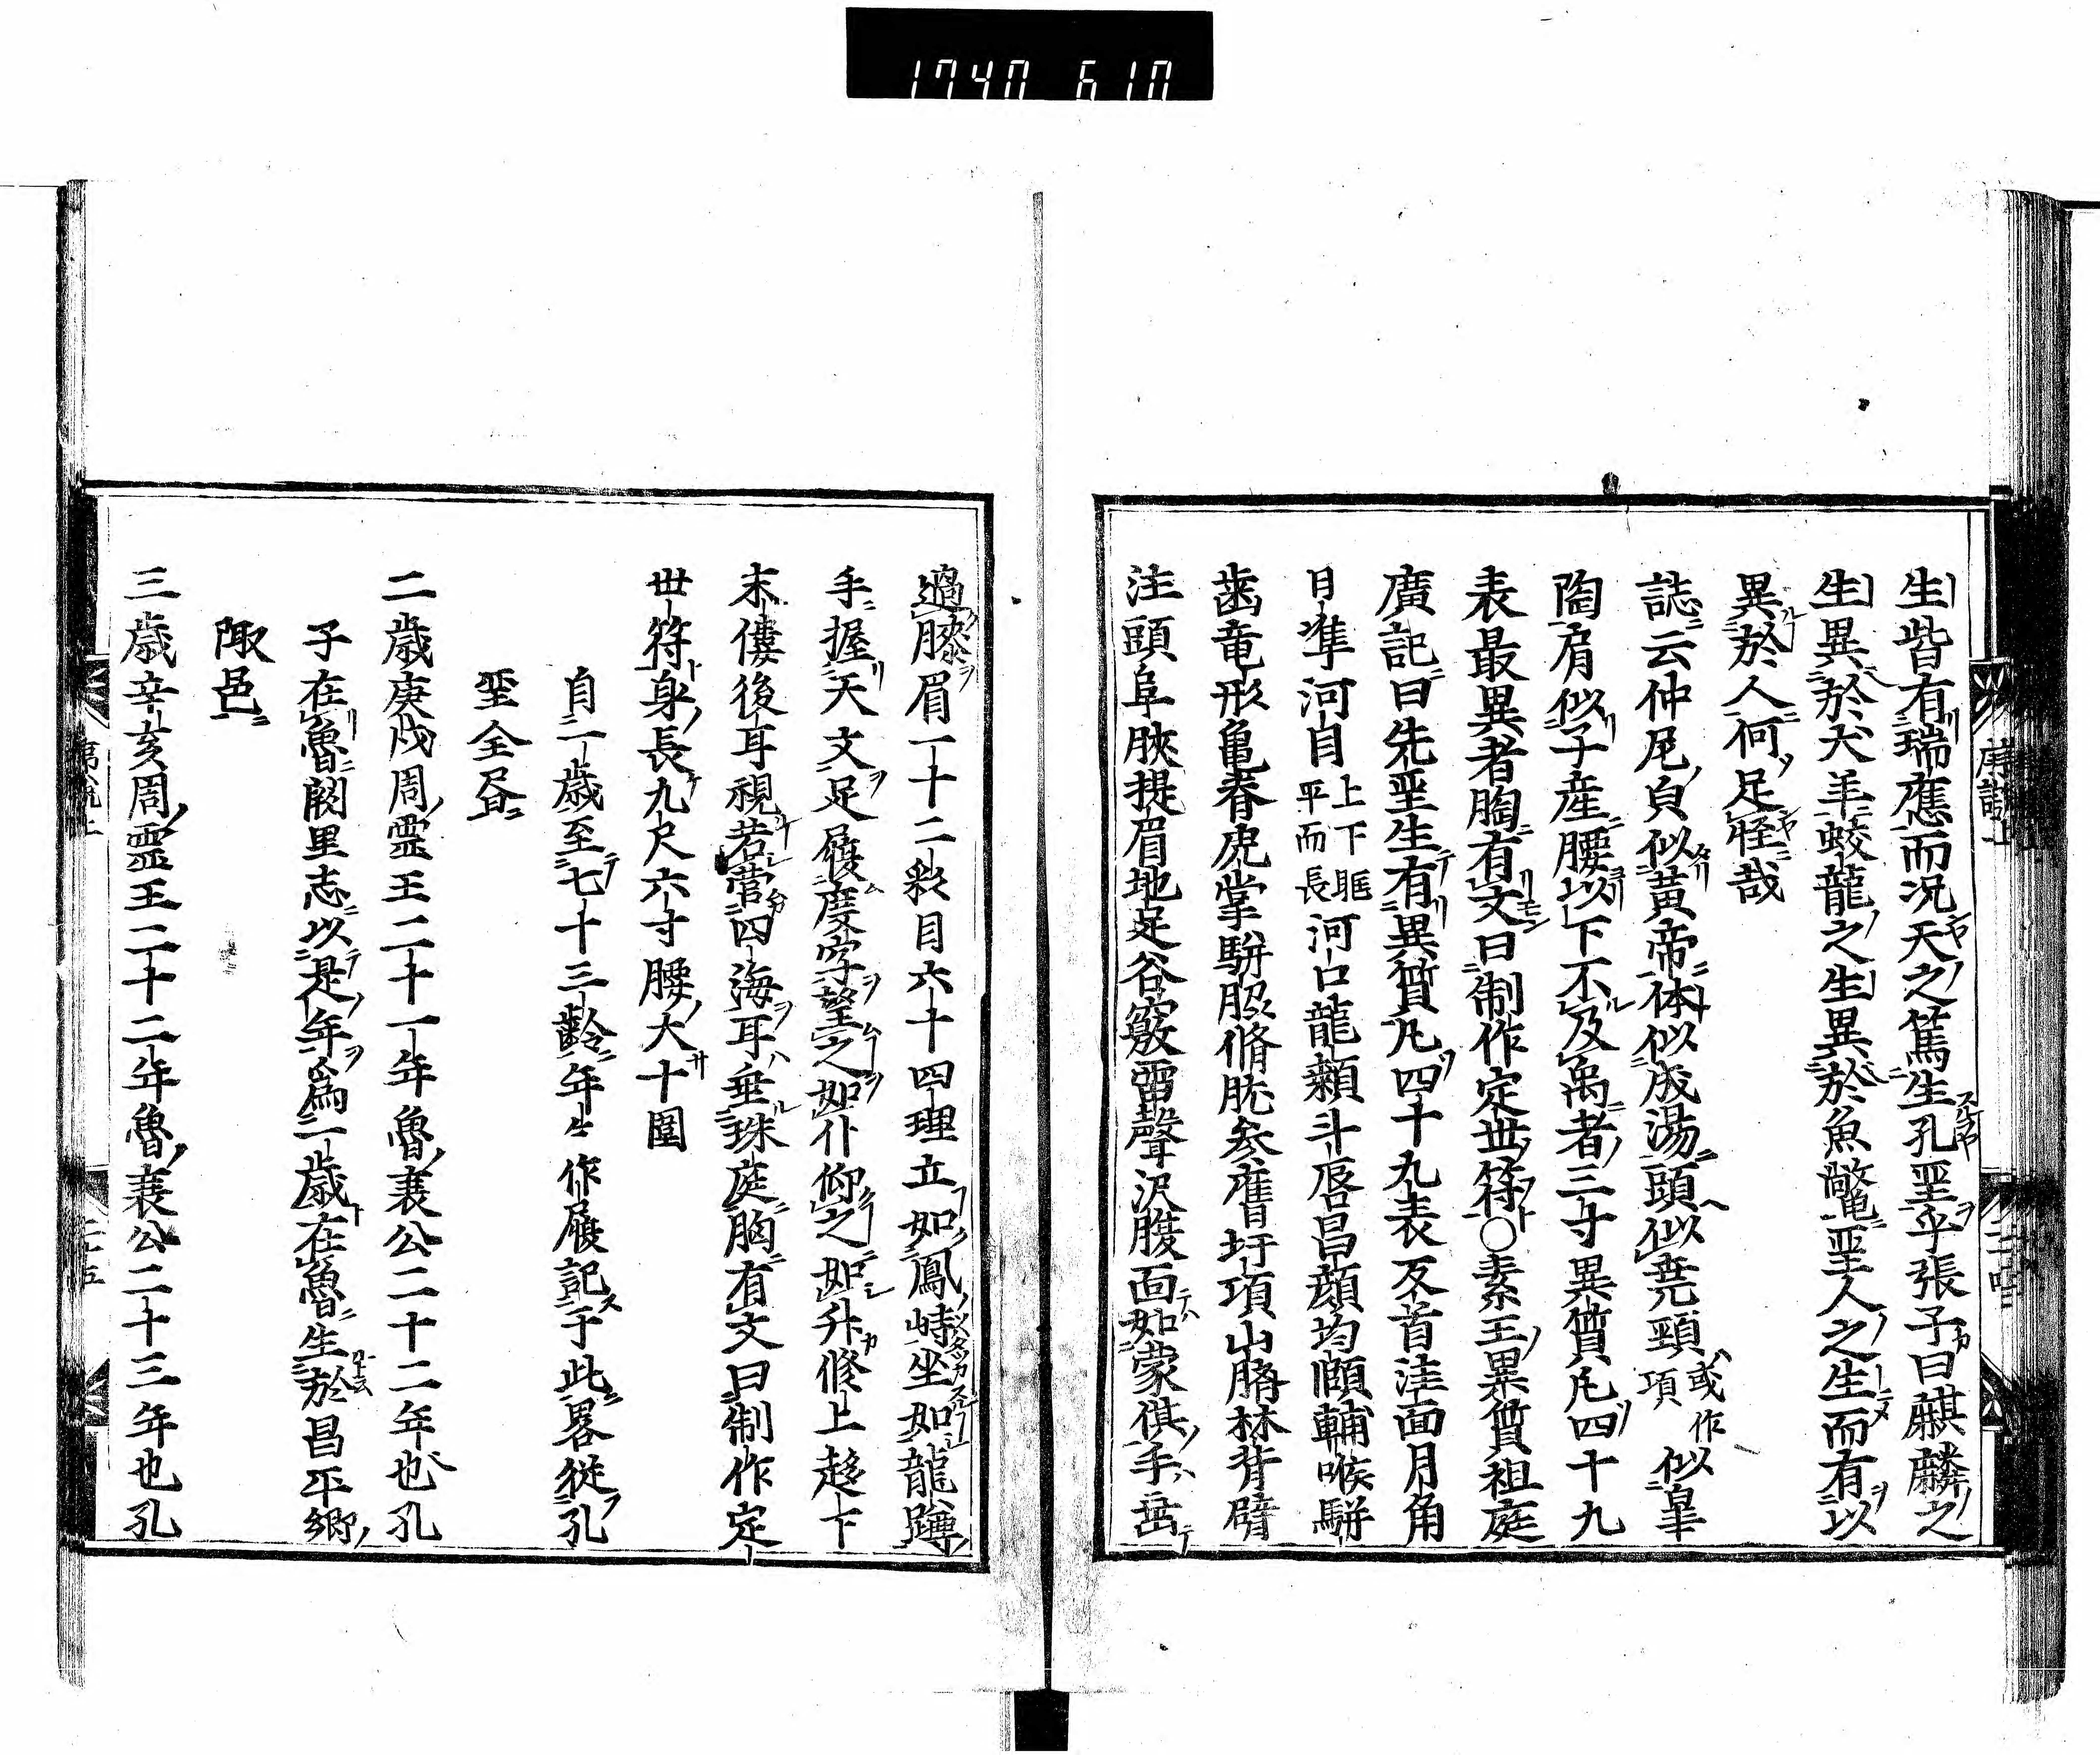 1740 610
生皆有瑞應而况天之篤生孔聖乎張子曰麒麟之
生異於犬羊蛟龍之生異於魚鼈聖人之生而有以
異於人何足怪哉
誌云仲尼皃似黄帝体似成湯頭似尭頸或作項似皐
陶肩似子産腰以下不及禹者三寸異質凢四十九
表最異者胸有文曰制作定世符○素王異質祖庭
廣記曰先聖生有異質凢四十九表反首洼面月角
日準河目上下眶平而長河口龍顙斗唇昌顔均頤輔喉騈
歯竜形亀脊虎掌騈脇脩肱参膺圩項山臍林背臂
注頭阜脥提眉地足谷竅雷聲沢腹面如蒙倛手垂
過膝眉一十二彩目六十四理立如鳳峙坐如龍蹲
手握天文足履度字望之如仆仰之如升修上趍下
末僂後耳視若營四海耳垂珠庭胸有文曰制作定
世符身長九尺六寸腰大十圍
自一歳至七十三齡年年作履記于此畧従孔
聖全昏
二歳庚戌周霊王二十一年魯襄公二十二年也孔
子在魯闕里志以是年為一歳在魯生於昌平郷
陬邑
三歳辛亥周霊王二十二年魯襄公二十三年也孔